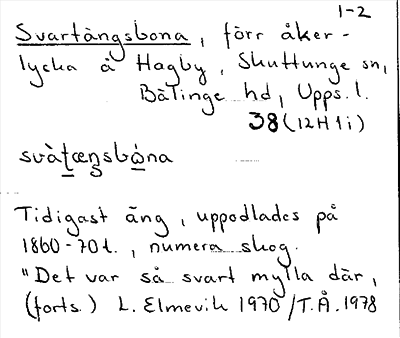 1-2
Svartängsbona, förr åker-
lycka å Hagby, Skuttunge sn,
Bälinge hd, Upps. l.
38 (12H 1i)
svàt̠æn̠gsbò̠na
Tidigast äng, uppodlades på
1860-70 t., numera skog.
"Det var så svart mylla där,
(forts.) L. Elmevik 1970 / T.Å. 1978